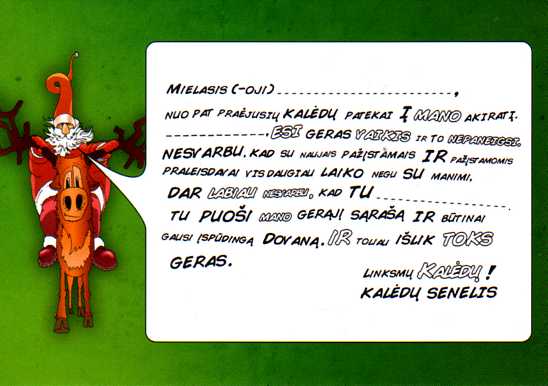 Mielasis (-oji) ,
nuo pat praėjusių Kalėdų patekai į mano akiratį.
. Esi geras vaikis ir to nepaneigsi.
Nesvarbu, kad su naujais pažįstamais ir pažįstamomis
praleisdavai vis daugiau laiko negu su manimi.
Dar labiau nesvarbu, kad tu
Tu puoši mano gerąjį sąrašą ir būtinai
gausi įspūdingą dovaną. Ir toliau išlik toks
geras.
Linksmų Kalėdų!
Kalėdų Senelis